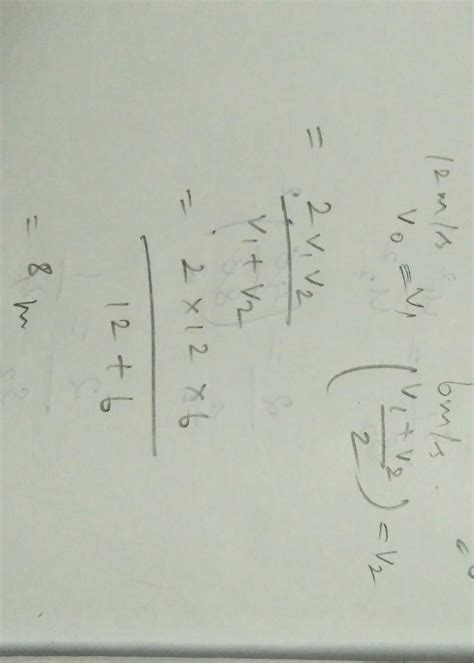 12 m/s 6 m/s.
V0 = V1 (V1 + V2 / 2) = V2
= 2 V1 V2 / V1 + V2
= 2 × 12 × 6 / 12 + 6
= 8 m